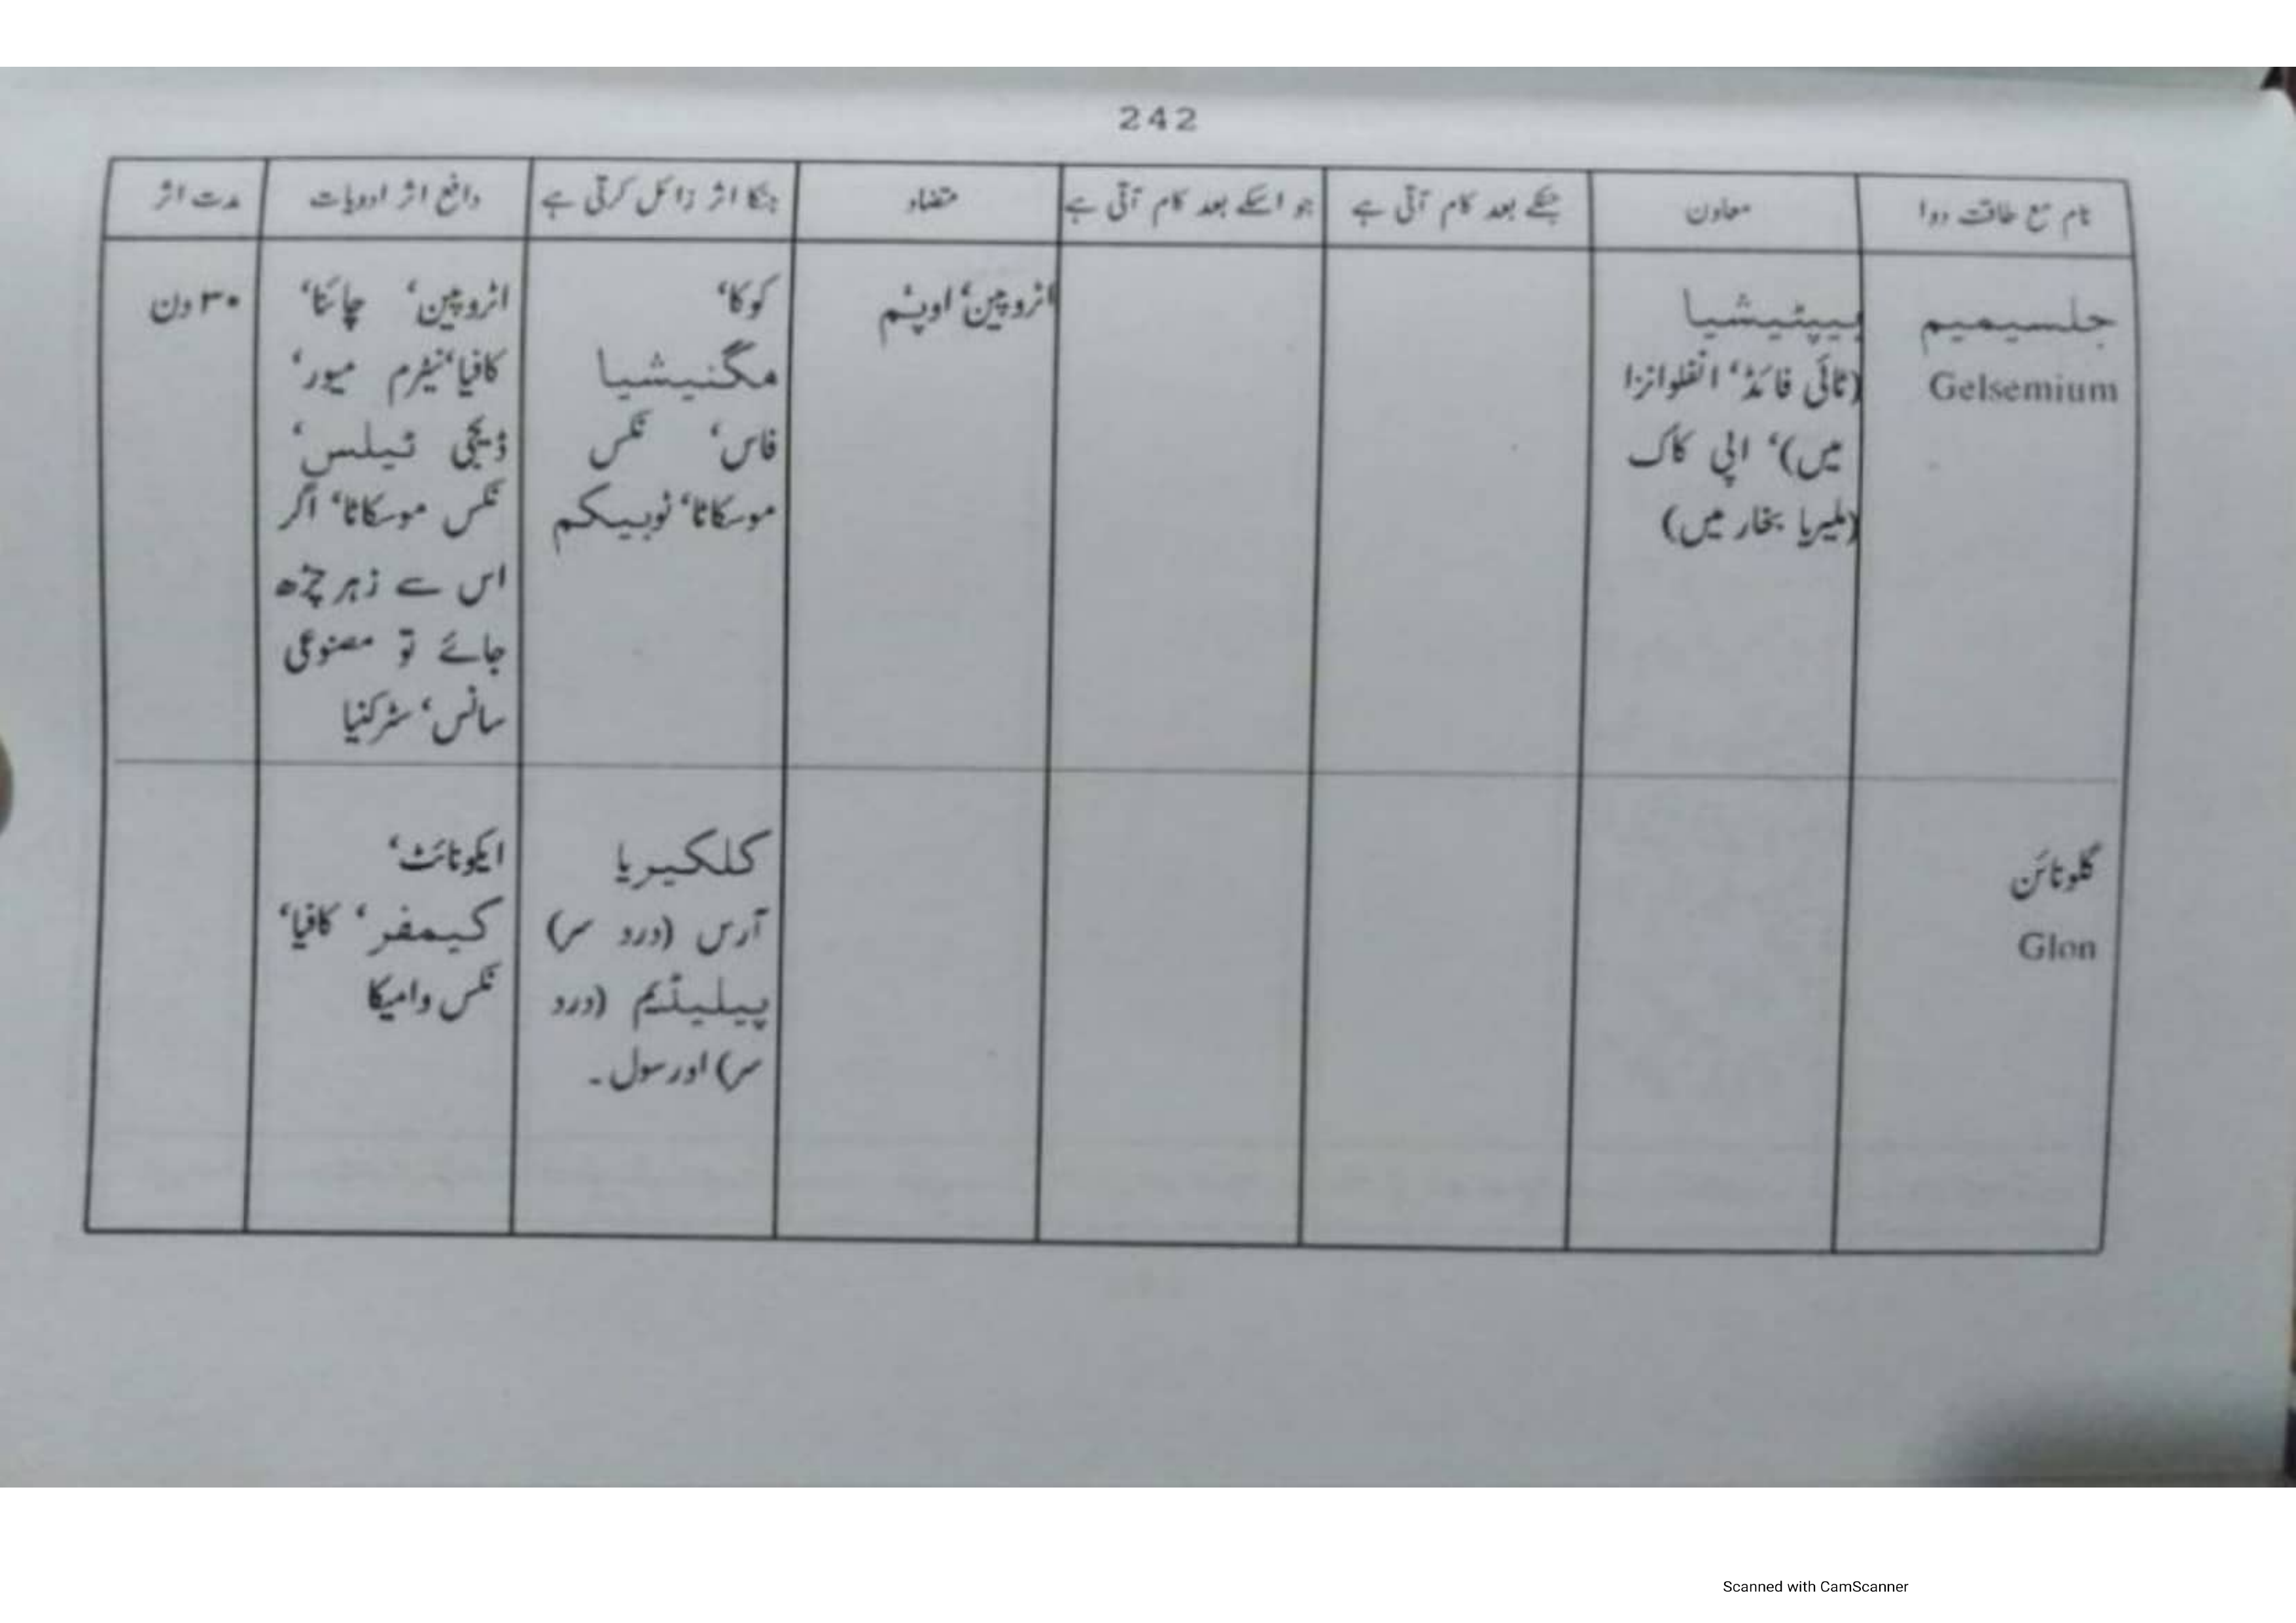 242
نام مع طاقت دوا
معاون
جسکے بعد کام آتی ہے
جو اسکے بعد کام آتی ہے
متضاد
جنکا اثر زائل کرتی ہے
دافع اثر ادویات
مدت اثر
جلسیمیم
Gelsemium
بیپٹیشیا
(ٹائی فائڈ، انفلوانزا
میں)، اپی کاک
(ملیریا بخار میں)
اٹروپین، اوپئم
کوکا،
مگنیشیا
فاس، نکس
موسکاٹا، ٹوبیکم
اٹروپین، چائنا،
کافیا، نیٹرم میور،
ڈیجی ٹیلس،
نکس موسکاٹا، اگر
اس سے زہر چڑھ
جائے تو مصنوعی
سانس، سٹرکنیا
۳۰ دن
گلونائن
Glon
کلکیریا
آرس (درد سر)
پیلیڈیم (درد
سر) اورسول۔
ایکونائٹ،
کیمفر، کافیا،
نکس وامیکا
Scanned with CamScanner